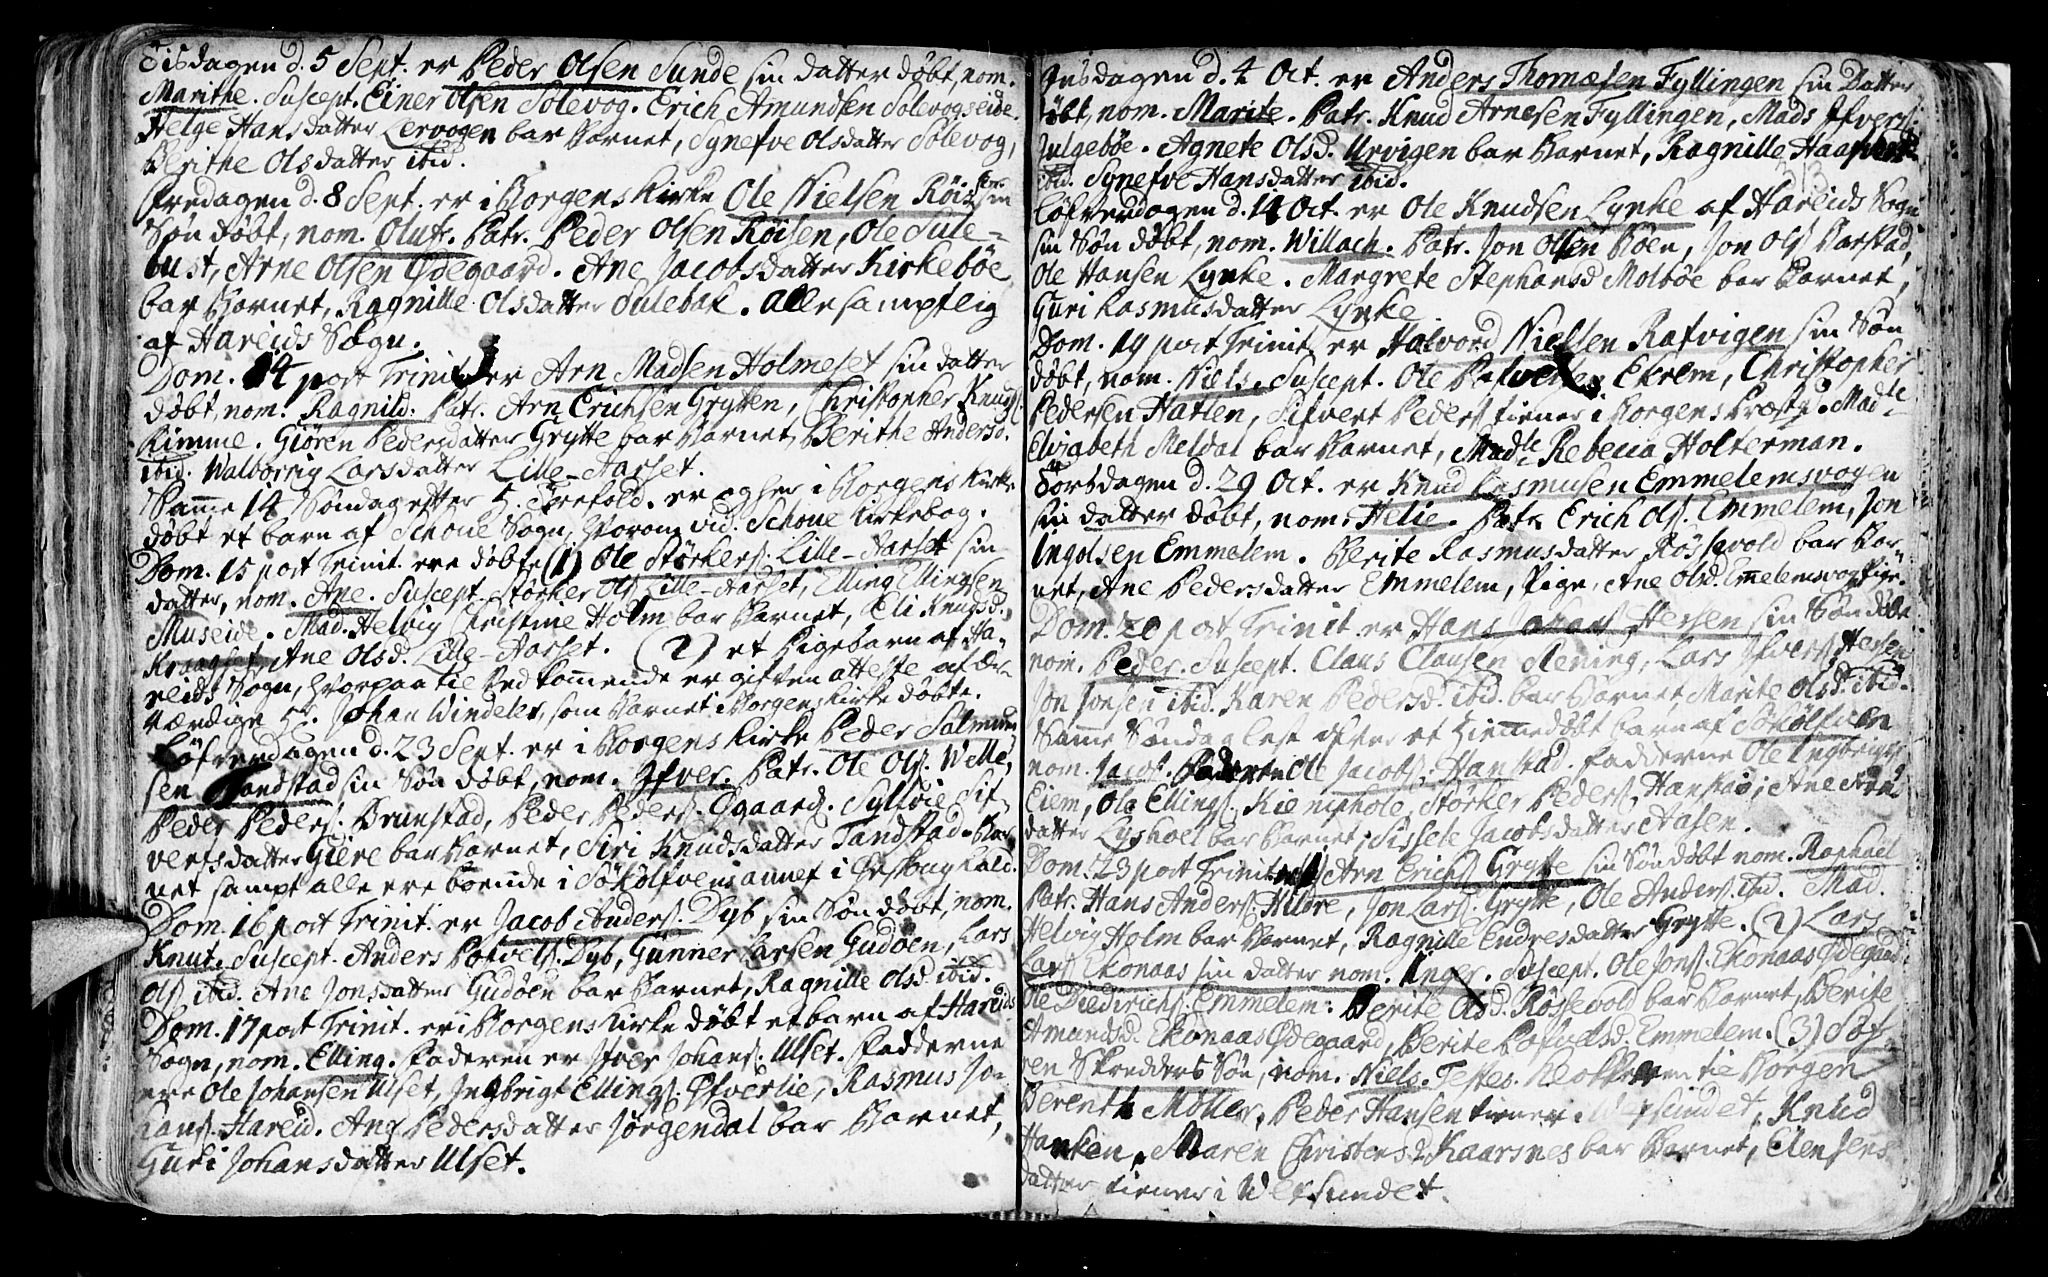 Tisdagen d. 5 Sept. er Peder Olsen Sunde sin datter døbt, nom.
Marithe. Suscept. Einer Olsen Solevog. Erich Amundsen Solevogseide.
Helge Hansdatter Lervogen bar Barnet, Synefve Olsdatter Solevog,
Berithe Olsdatter ibid.
Fredagen d. 8 Sept. er i Borgens Kirke Ole Nielsen Röis sin
Søn døbt, nom. Oluf. Patr. Peder Olsen Röisen, Ole Sule-
bust, Arne Olsen Ødegaard. Ane Jacobsdatter Kirkebøe
bar Barnet, Ragnille Olsdatter Sulebak. Alle sampflig
af Hareids Sogn.
Dom. 14 post Trinit. er Arn Madsen Holmeset sin datter
døbt, nom. Ragnild. Patr. Arn Erichsen Grytten, Christopher Knuds.
Rimme. Giören Pedersdatter Grytte bar Barnet, Berithe Andersd.
ibid. Walborrig Larsdatter Lille-Aarset.
Samme 14 Søndag efter S. Trefold. er og her i Borgens Kirke
døbt et barn af Schoue Sogn, hvorom vid. Schoue Kirkebog.
Dom. 15 post Trinit. ere døbte (1) Ole Störkers. Lille-Aarset sin
datter, nom. Ane. Suscept. Störker Ols. Lille-Aarset, Elling Ellingsen
Museide. Mad. Helvig Christine Holm bar Barnet, Eli Knudsd.
Ane Olsd. Lille-Aarset. (2) et Pigebarn af Ha-
reids Sogn, hvorpaa til vedkommende er gifven atteste af Ær-
værdige Hr. Johan Windeler, som Barnet i Borgens Kirke døbte.
Löfverdagen d. 23 Sept. er i Borgens Kirke Peder Salmund-
sen Tandstad sin Søn døbt, nom. Ifver. Patr. Ole Ols. Welle,
Peder Peders. Brunstad, Peder Peders. Øgaard. Syllöie Sif-
vertsdatter Giere bar Barnet, Siri Knudsdatter Tandstad. Bar-
net sampt alle ere boende i Sökölfvens annex i Ørskoug Kald.
Dom. 16 post Trinit. er Jacob Anders. Dyb sin Søn døbt, nom.
Knut. Suscept. Anders Pofvels. Dyb, Gunner Larsen Gudöen, Lars
Ols. ibid. Ane Jonsdatter Gudöen bar Barnet, Ragnille Olsd. ibid.
Dom. 17 post Trinit. er i Borgens Kirke døbt et barn af Hareids
Sogn, nom. Elling. Faderen er Ifver Johans. Ulset. Fadderne
ere Ole Johansen Ulset, Ingbrigt Ellings. Øfverlie, Rasmus Jo-
hans. Hareid. Ane Pedersdatter Jørgendal bar Barnet,
Guri Johansdatter Ulset.
Onsdagen d. 4 Oct. er Anders Thomæsen Fyllingen sin Datter
døbt, nom. Marite. Patr. Knud Arnesen Fyllingen, Mads Ifvers.
Julgebøe. Agnete Olsd. Urvigen bar Barnet, Ragnille
ibid. Synefve Hansdatter ibid.
Löfverdagen d. 14 Oct. er Ole Knudsen Lynke af Hareids Sogn
sin Søn døbt, nom. Willach. Patr. Jon Olsen Böen, Jon Ols. Barstad,
Ole Hansen Lynke. Margrete Stephansd. Molbøe bar Barnet,
Guri Rasmusdatter Lynke
Dom. 19 post Trinit. er Halvord Nielsen Rafvigen sin Søn
døbt, nom. Niels. Suscept. Ole Ekrem, Christopher
Pedersen Hatlen, Sifvert Peders. tiener i Borgens Præstg. Madle
Elizabeth Meldal bar Barnet, Madle Rebecca Holterman.
Torsdagen d. 29 Oct. er Knud Rasmusen Emmelemsvogen
sin datter døbt, nom. Helie. Patr. Erich Ols. Emmelem, Jon
Ingolsen Emmelem. Berite Rasmusdatter Rössevold bar Bar-
net, Ane Pedersdatter Emmelem, Pige, Ane Olsd. Emelemsvog Pige.
Dom. 20 post Trinit. er Hans Johans. Hessen sin Søn døbt
nom. Peder. Suscept. Claus Clausen Slening, Lars Ifvers. Hessen,
Jon Jonsen ibid. Karen Pedersd. ibid. bar Barnet Marite Olsd. ibid.
Samme Søndag lest ofver et hiemmedøbt barn af Sökölfven
nom. Jacob. Faderen Ole Jacobs. Hanstad. Fadderne Ole Ingbrigts.
Eiem, Ole Ellings. Kiemphole, Störker Peders. Hanstad, Ane Arne-
datter Lyshoel bar Barnet, Sissele Jacobsdatter Aasen.
Dom. 23 post Trinit. (1) Arn Erichs. Grytte sin Søn døbt nom. Raphael
Patr. Hans Anders. Hildre, Jon Lars. Grytte, Ole Anders. ibid. Mad.
Helvig Holm bar Barnet, Ragnille Endresdatter Grytte. (2) Lars
Lars. Ekonaas sin datter nom. Inger. Suscept. Ole Jons. Ekonaas Ødegaard
Ole Diedrichs. Emmelem. Berite Olsd. Rössevold bar Barnet, Berite
Amundsd. Ekonaas Ødegaard, Berite Pofvelsd. Emmelem. (3) Söf-
ren Skredders Søn, nom. Niels. Testes. Klokkeren til Borgen
Berent Möller, Peder Hansen tiener i Wefsundet, Knud
Hanken, Maren Christensd. Kaarsnes bar Barnet, Elen Jens
datter tiener i Wefsundet.